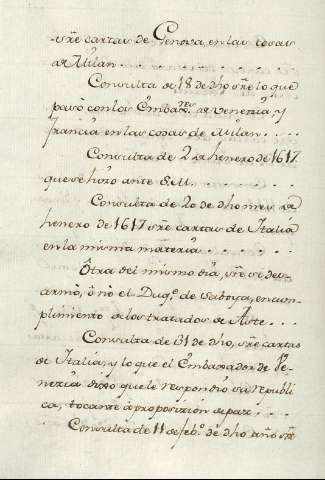 -sre cartas de Genova, en las cosas
de Milan
Consulta de 18 de dho sre lo que
pasò con los Embax.res de Venecia, y
francia en las cosas de Milan
Consulta de 2 de henero de 1617
que se hizo ante S.M.
Consulta de 20 de dho mes de
henero de 1617 sre cartas de Italia
en la misma materia
Otra del mismo dia, sre si des-
armò, ò nò el Duq.e de Saboya, en cum-
plimiento de los tratados de Aste
Consulta de 31 de dho, sre cartas
de Italia, y lo que el Embaxador de Ve-
necia dixo que le respondiò su republi
ca, tocante à proposicion de paz
Consulta de 11 de feb.o de dho año sre